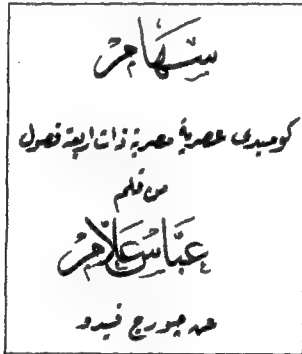 سِهَام
كوميدى عصرية مصرية ذات اربعة فصول
من قلم
عَبَّاسْ عَلَّام
عن جورج فيدو